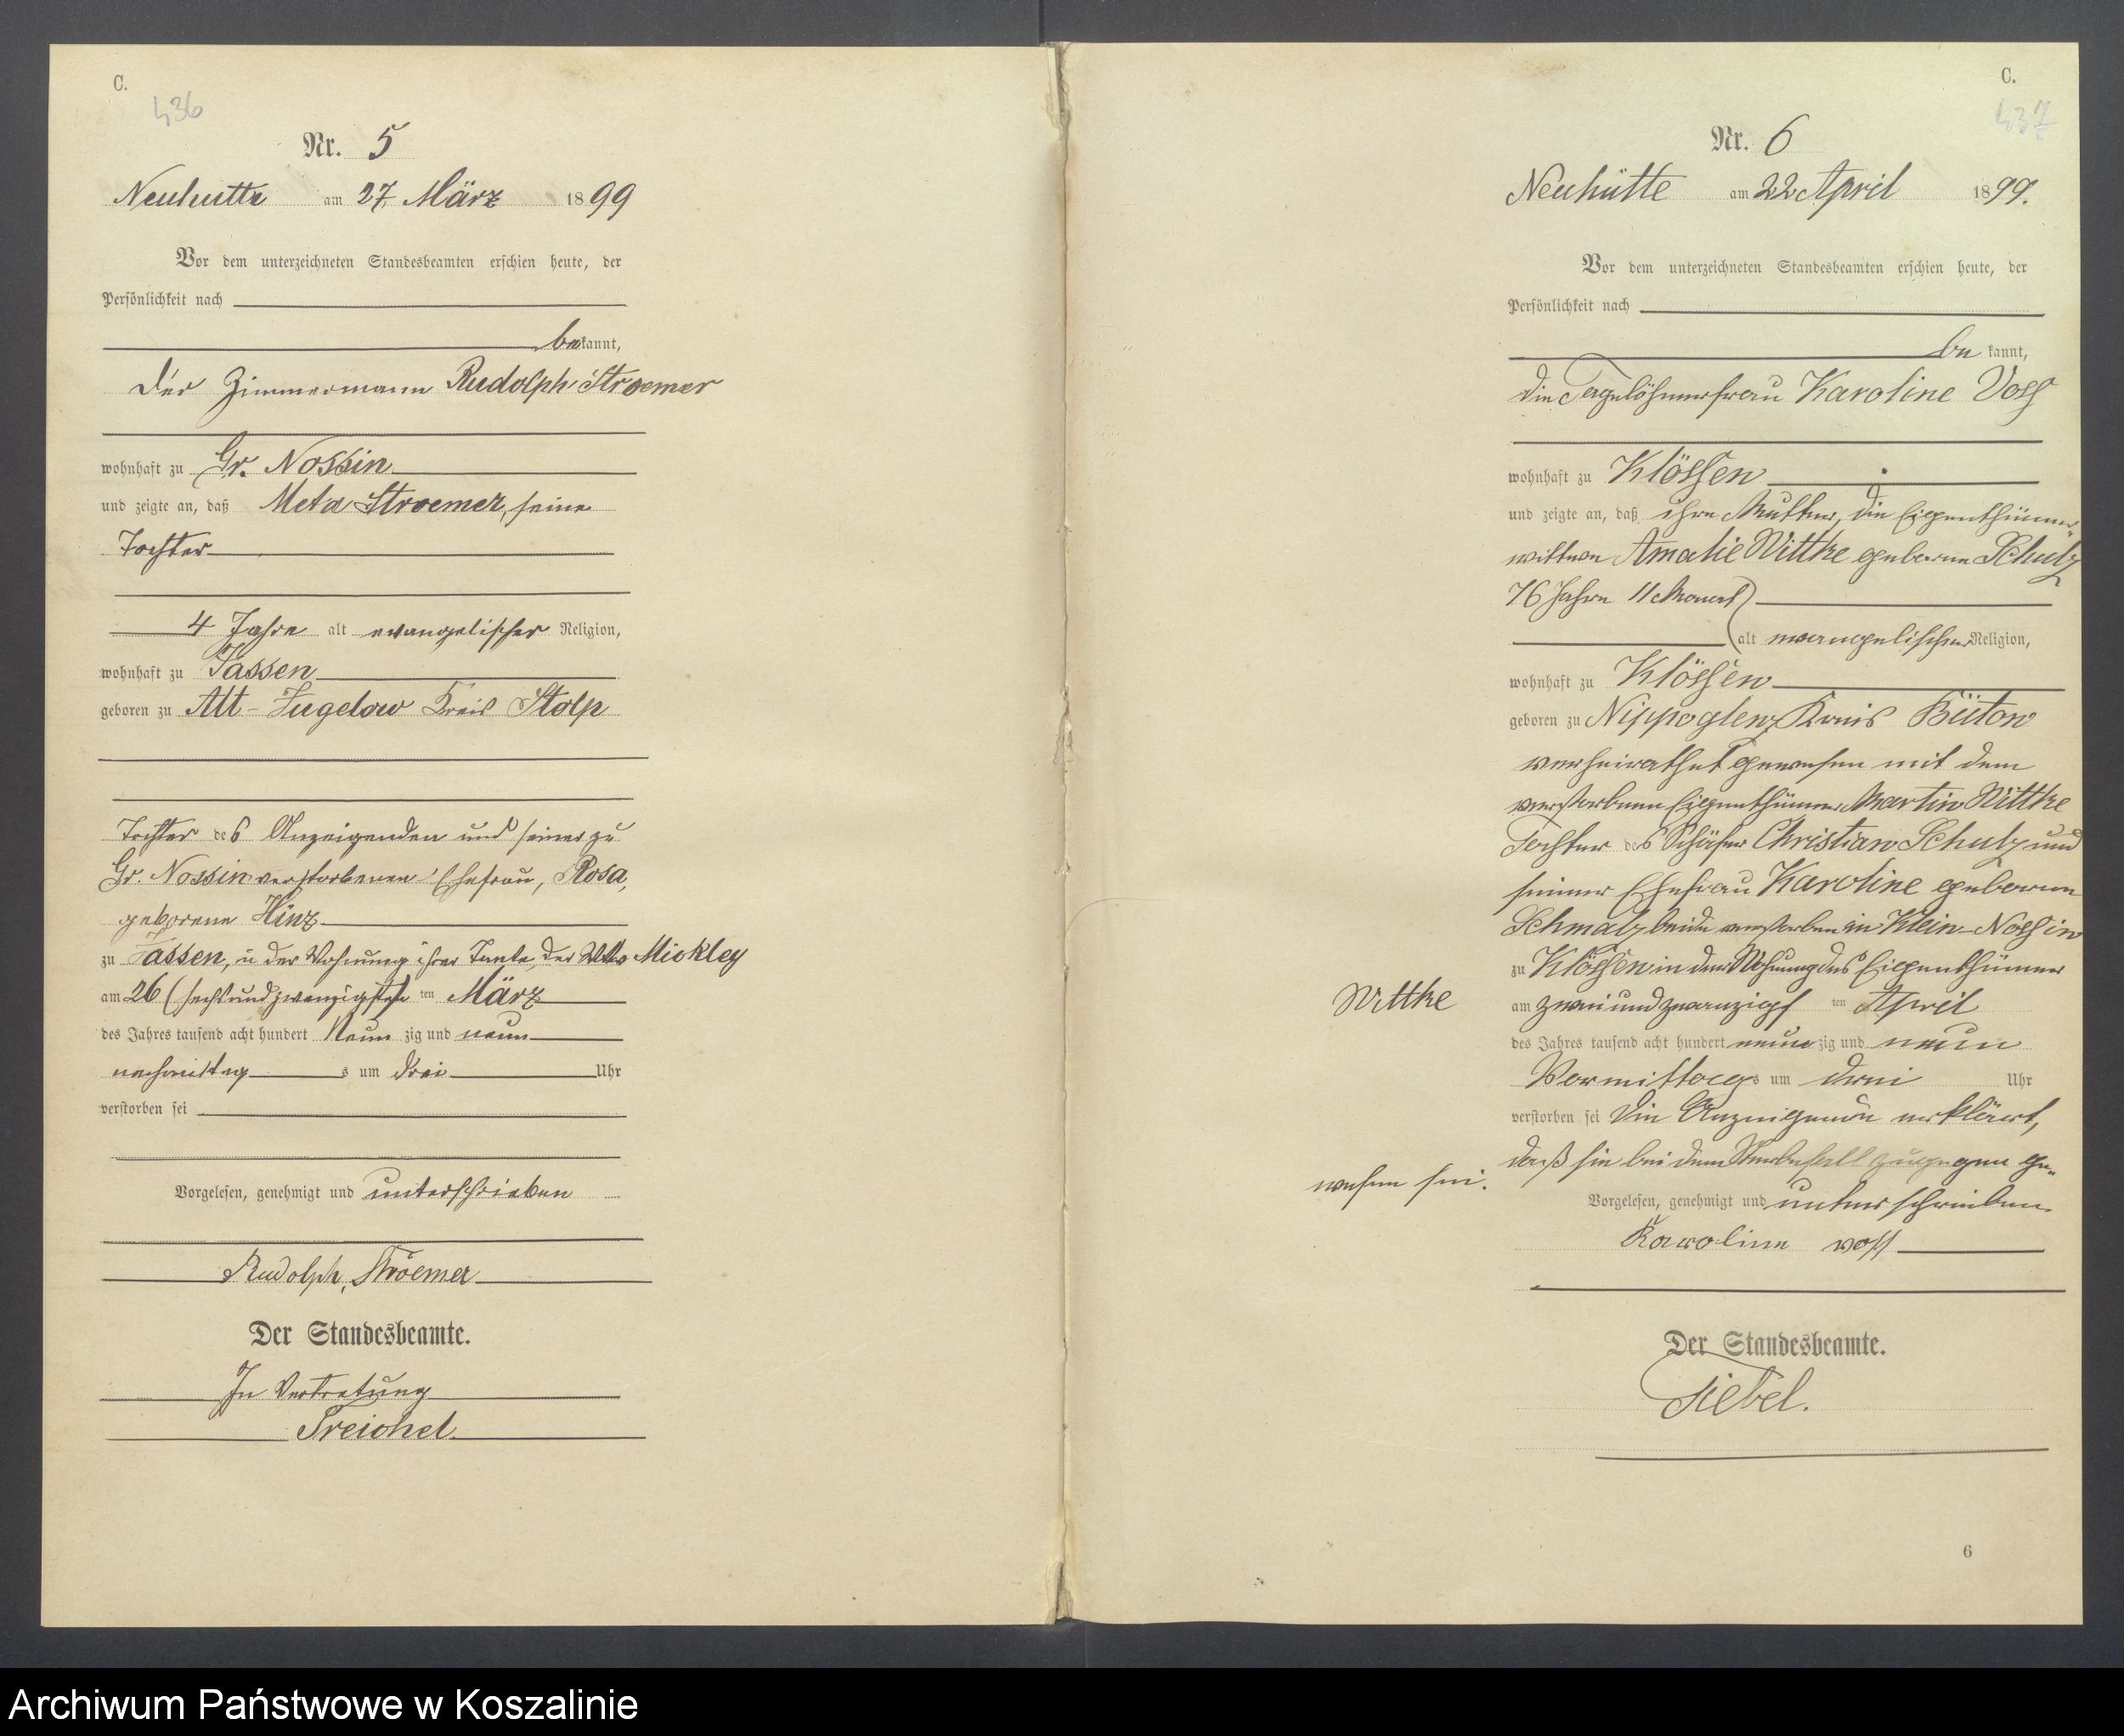 C.
436
Nr. 5
Neuhutte am 27. März 1899
Vor dem unterzeichneten Standesbeamten erschien heute, der
Persönlichkeit nach
bekannt,
der Zimmermann Rudolph Stroemer
wohnhaft zu Gr. Nossin
und zeigte an, daß Meta Stroemer, seine
Tochter
4 Jahre alt evangelischer Religion,
wohnhaft zu Jassen
geboren zu Alt-Jugelow Kreis Stolp
Tochter des Anzeigenden und seiner zu
Gr. Nossin verstorbenen Ehefrau, Rosa,
geborene Hinz
zu Jassen, in der Wohnung ihrer Tante, der Mickley
am 26 (sechsundzwanzigsten ten März
des Jahres tausend acht hundert Neun zig und neun
nachmittag s um drei Uhr
verstorben sei
Vorgelesen, genehmigt und unterschrieben
Rudolph, Stroemer
Der Standesbeamte.
In Vertretung
Treichel.
C.
437
Nr. 6
Neuhütte am 22 April 1899.
Vor dem unterzeichneten Standesbeamten erschien heute, der
Persönlichkeit nach
be kannt,
die Tagelöhnerfrau Karoline Voss
wohnhaft zu Klössen
und zeigte an, daß ihre Mutter, die Eigenthümer
wittwe Amalie Wittke geborne Schulz
76 Jahre 11 Monat
alt evangelischer Religion,
wohnhaft zu Klössen
geboren zu Nippoglenz Kreis Bütow
verheirathet gewesen mit dem
verstorbenen Eigenthümer Martin Wittke
Tochter des Schäfer Christian Schulz und
seiner Ehefrau Karoline geborene
Schmalz beide verstorben in Klein-Nossin
zu Klössen in der Wohnung des Eigenthümer
Wittke
am zweiundzwanzigst ten April
des Jahres tausend acht hundert neun zig und neun
Vormittags um drei Uhr
verstorben sei Die Anzeigende erklärt,
daß sie bei dem Sterbefall zugegen ge-
wesen sei.
Vorgelesen, genehmigt und unterschrieben
Karoline voss
Der Standesbeamte.
Tiebel.
6
Archiwum Państwowe w Koszalinie